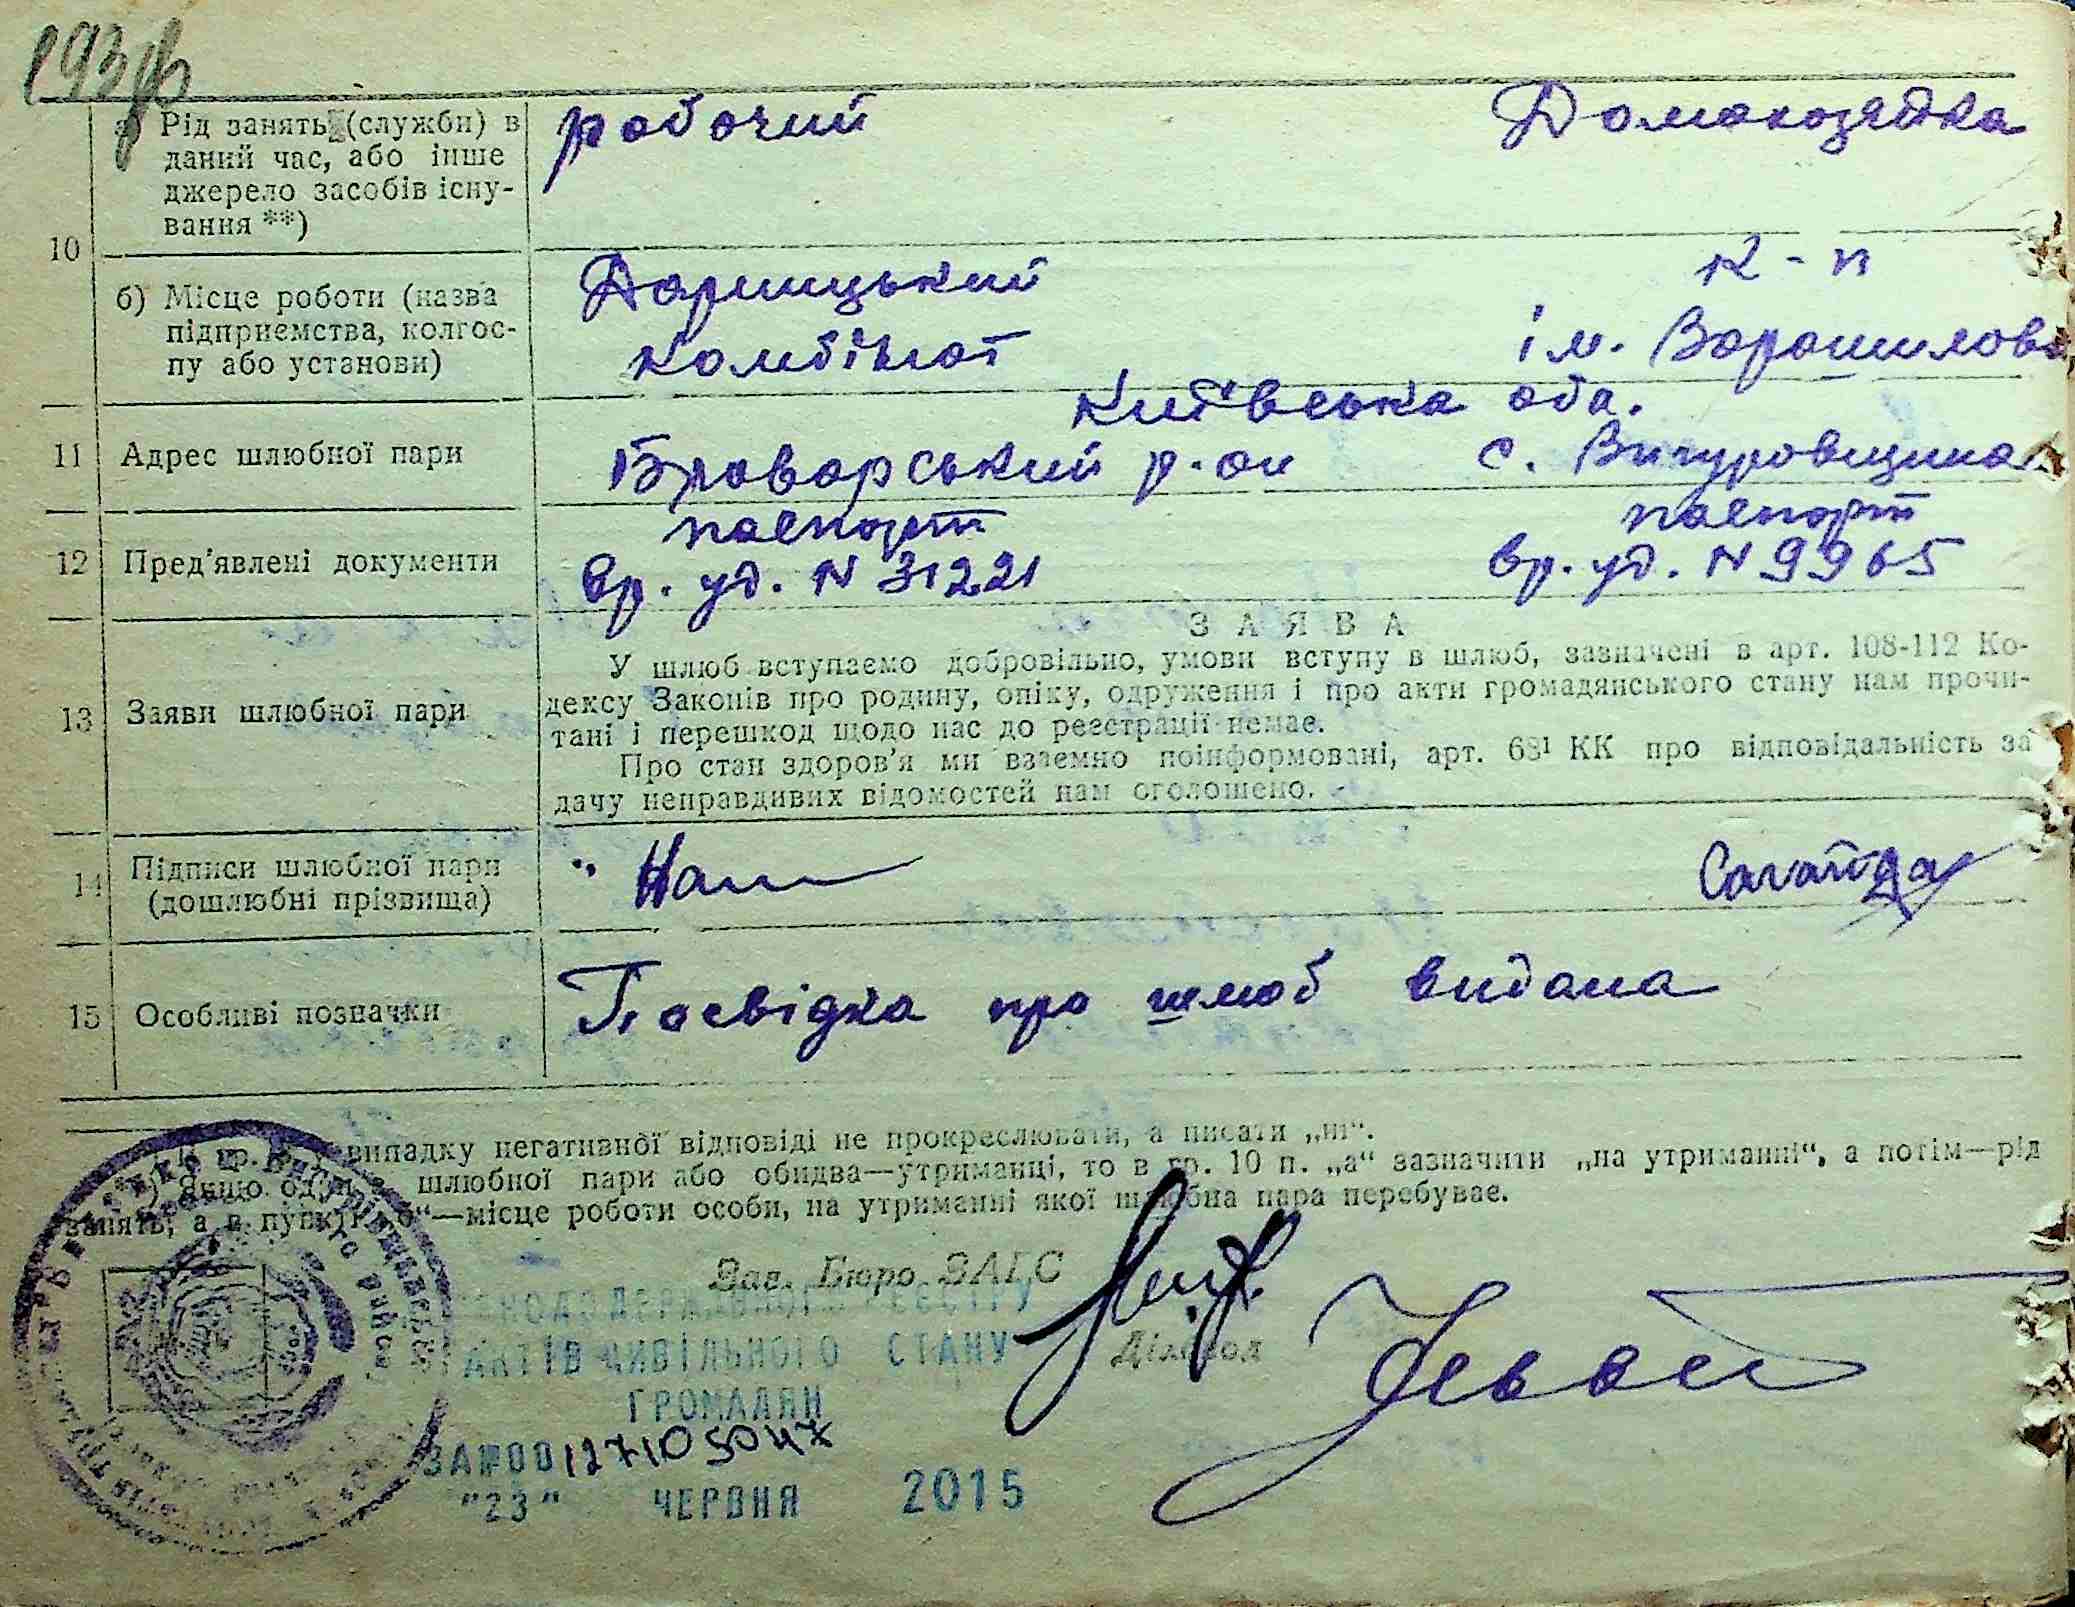 193
а) Рід занять (служби) в
даний час, або інше
джерело засобів існу-
вання **)
робочий
Домохозяйка
10
б) Місце роботи (назва
підприємства, колгос-
пу або установи)
Дарницький
комбінат
к-п
ім. Ворошилова
11
Адрес шлюбної пари
Київська обл.
Броварський р-он с. Вигуровщина
12
Пред'явлені документи
паспорт
вр. уд. N 31221
паспорт
вр. уд. N 9965
13
Заяви шлюбної пари
ЗАЯВА
У шлюб вступаємо добровільно, умови вступу в шлюб, зазначені в арт. 108-112 Ко-
дексу Законів про родину, опіку, одруження і про акти громадянського стану нам прочи-
тані і перешкод щодо нас до реєстрації немає.
Про стан здоров'я ми взаємно поінформовані, арт. 68¹ КК про відповідальність за
дачу неправдивих відомостей нам оголошено.
14
Підписи шлюбної пари
(дошлюбні прізвища)
Сагайда
15
Особливі позначки
Посвідка про шлюб видана
випадку негативної відповіді не прокреслювати, а писати „ні“.
Якщо один з шлюбної пари або обидва—утриманці, то в гр. 10 п. „а“ зазначити „на утриманні“, а потім—рід
занять, а в пункті „б“—місце роботи особи, на утриманні якої шлюбна пара перебуває.
Зав. Бюро ЗАГС
Діловод
ДЕРЖАВНОГО РЕЄСТРУ
АКТІВ ЦИВІЛЬНОГО СТАНУ
ГРОМАДЯН
ЗА №00127105047
"23" ЧЕРВНЯ 2015